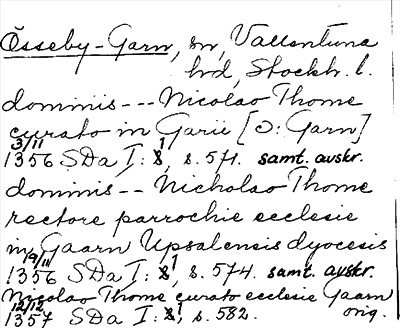 Össeby-Garn, sn, Vallentuna
hd, Stockh. l.
dominis --- Nicolao Thome
curato in Garii [ɔ: Garn]
3/11 1356 SDa I: 1, s. 574. samt. avskr.
dominis -- Nicholao Thome
rectore parrochie ecclesie
in Gaarn Upsalensis dyocesis
9/11 1356 SDa I: 1, s. 574. samt. avskr.
Nicolao Thome curato ecclesie Gaarn
12/12 1357 SDa I: 1, s. 582. orig.